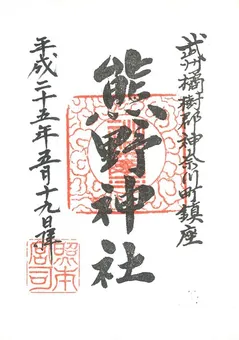 武州橘樹郡神奈川町鎮座
熊野神社
平成二十五年五月十九日拝
熊本宮司